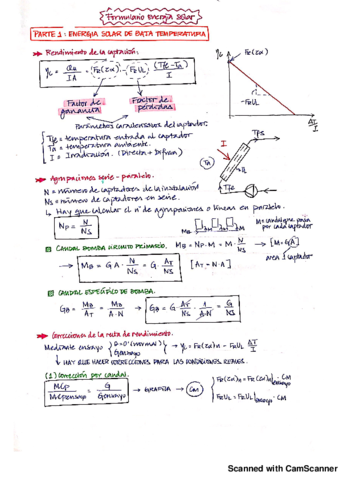 Formulario Energía Solar
PARTE 1: ENERGIA SOLAR DE BAJA TEMPERATURA
Rendimiento de la captación.
ηc = Qu / IA = (FR(τα)) - (FRUL) (Tfe - Ta) / I
Factor de ganancia
Factor de pérdidas
Parámetros característicos del captador.
Tfe = temperatura entrada al captador
Ta = temperatura ambiente.
I = Irradiación. (Directa + Difusa)
ηc
FR(τα)
-FRUL
ΔT / I
Tfs
I
Ta
Tfe
Agrupaciones serie - paralelo.
N = número de captadores de la instalación
Ns = número de captadores en serie.
Hay que calcular el nº de agrupaciones o líneas en paralelo.
Np = N / Ns
MB
M = caudal que pasa por cada captador
CAUDAL BOMBA CIRCUITO PRIMARIO. MB = Np · M = M · N / Ns → [M = G·A]
área 1 captador
MB = G·A · N / Ns = G · AT / Ns [AT = N·A]
CAUDAL ESPECÍFICO DE BOMBA.
GB = MB / AT = MB / A·N → GB = G · AT / Ns · 1 / A·N = G / Ns
Correcciones de la recta de rendimiento.
Mediante ensayo { θ=0º (normal) Gensayo } → ηc = FR(τα)n - FRUL ΔT / I
HAY QUE HACER CORRECCIONES PARA LAS CONDICIONES REALES.
(1) Corrección por caudal.
MCp / MCpensayo = G / Gensayo → GRÁFICA → CM
FR(τα)n = FR(τα)n]ensayo · CM
FRUL = FRUL]ensayo · CM
Scanned with CamScanner